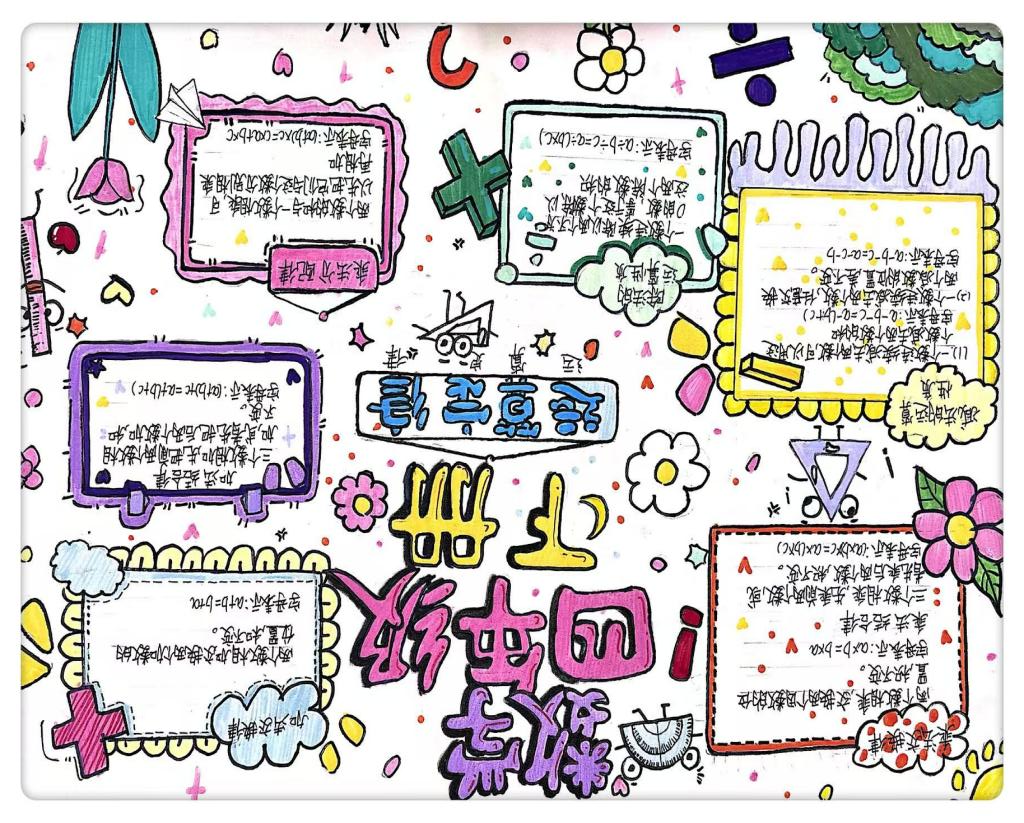 数学
四年级
下册
运算定律
乘法交换律
两个数相乘,交换两个因数的位
置,积不变。
字母表示:a×b=b×a
乘法结合律
三个数相乘,先乘前两个数,或
者先乘后两个数,积不变。
字母表示:(a×b)×c=a×(b×c)
加法交换律
两个数相加,交换两个加数的
位置,和不变。
字母表示:a+b=b+a
加法结合律
三个数相加,先把前两个数相
加,或者先把后两个数相加,和
不变。
字母表示:(a+b)+c=a+(b+c)
减法的运算
性质
(1)一个数连续减去两个数,可以用这
个数减去两个数的和
字母表示:a-b-c=a-(b+c)
(2)一个数连续减去两个数,任意交换
两个减数的位置,差不变。
字母表示:a-b-c=a-c-b
除法的
运算性质
一个数连续除以两个不为
0的数,等于这个数除以
这两个除数的积
字母表示:a÷b÷c=a÷(b×c)
乘法分配律
两个数的和与一个数相乘,可
以先把它们与这个数分别相乘
再相加
字母表示:(a+b)×c=a×c+b×c